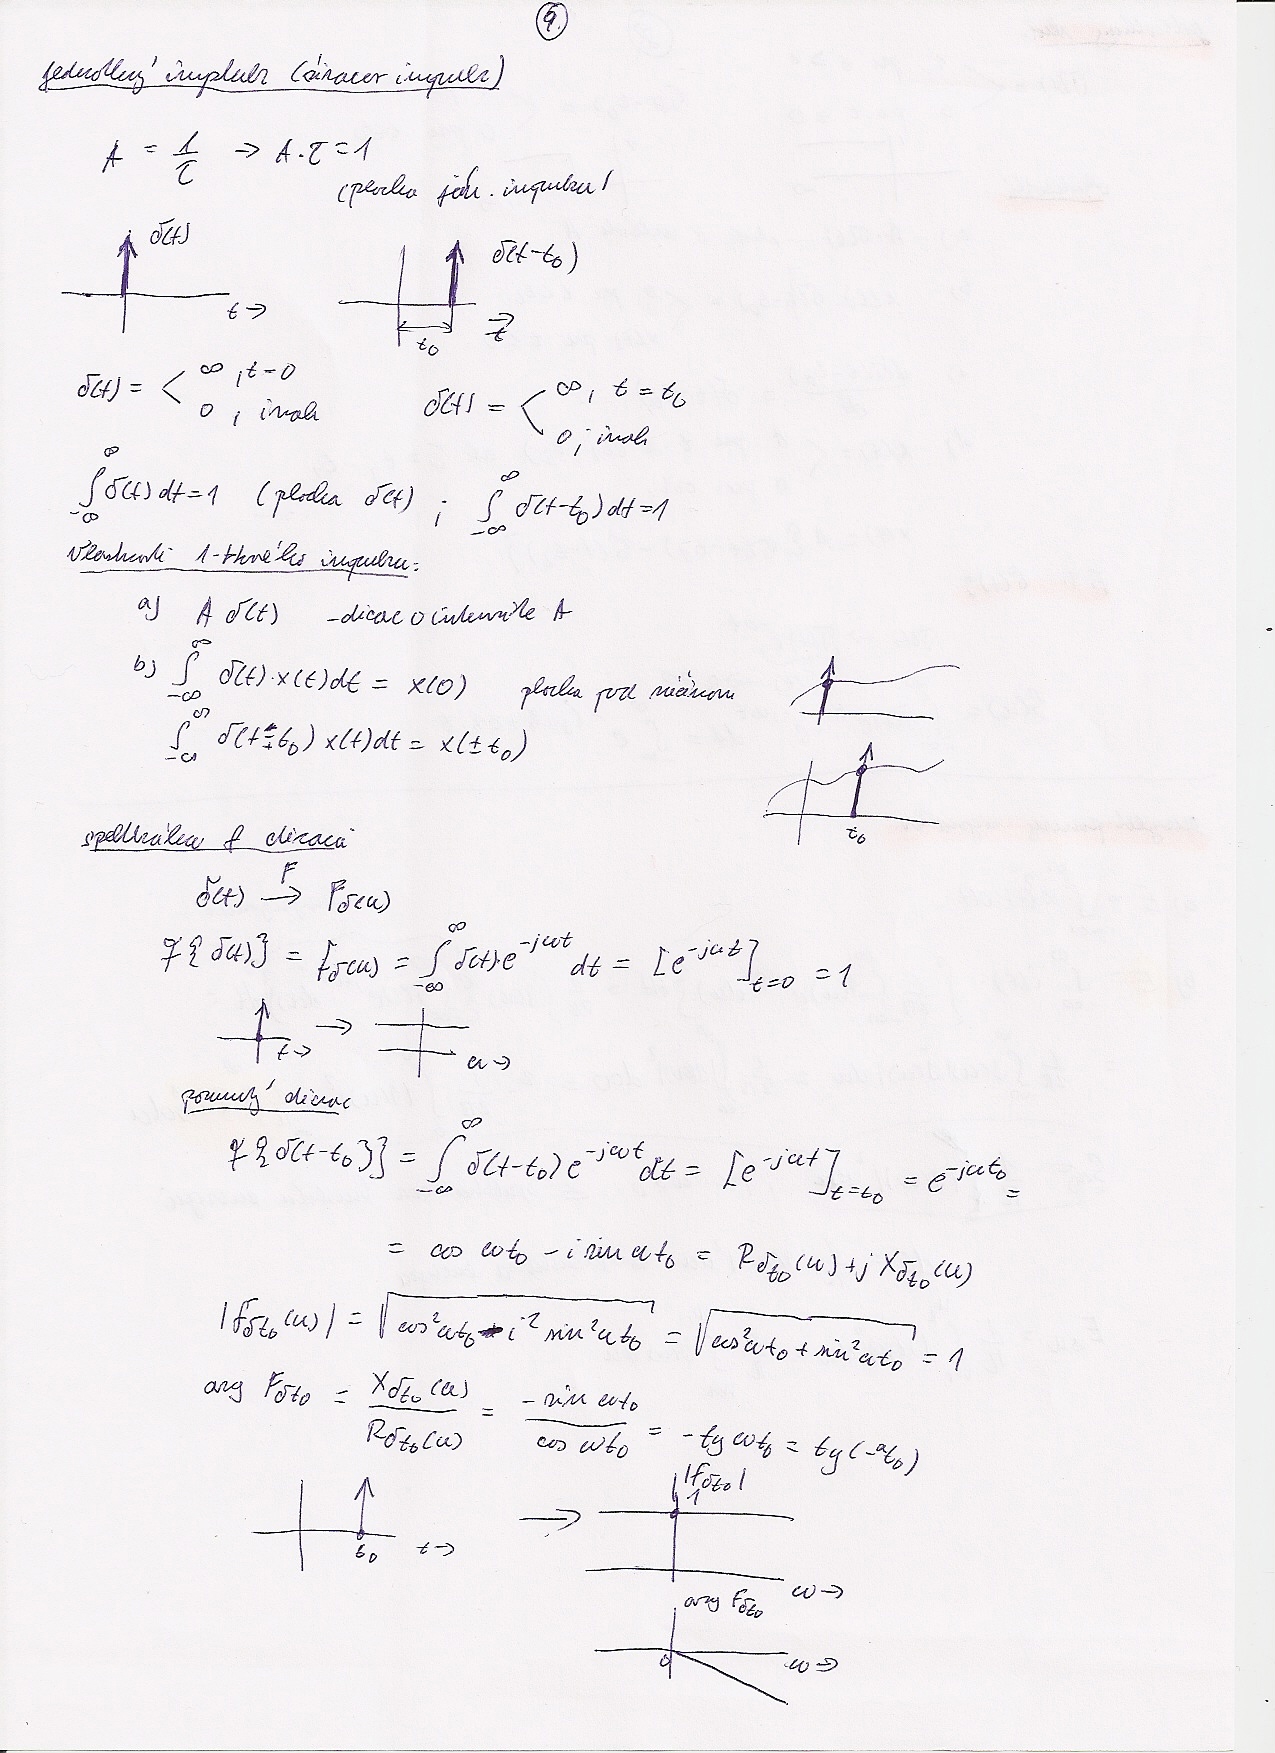 9.
jednotkový impulz (diracov impulz)
A = 1/τ → A·τ = 1
(plocha jedn. impulzu)
δ(t)
t →
δ(t-t₀)
t₀
t →
δ(t) = < ∞, t=0
0, inak
δ(t) = < ∞, t = t₀
0, inak
∫_{-∞}^{∞} δ(t) dt = 1 (plocha δ(t)) ; ∫_{-∞}^{∞} δ(t-t₀) dt = 1
Vlastnosti 1-tkového impulzu:
a) A δ(t) - dirac o intenzite A
b) ∫_{-∞}^{∞} δ(t)·x(t)dt = x(0) plocha pod
∫_{-∞}^{∞} δ(t∓t₀) x(t)dt = x(±t₀)
t₀
spektrálna f diraca
δ(t) →^F F_δ(ω)
F{δ(t)} = F_δ(ω) = ∫_{-∞}^{∞} δ(t)·e^{-jωt} dt = [e^{-jωt}]_{t=0} = 1
t →
ω →
posunutý dirac
F{δ(t-t₀)} = ∫_{-∞}^{∞} δ(t-t₀) e^{-jωt} dt = [e^{-jωt}]_{t=t₀} = e^{-jωt₀} =
= cos ωt₀ - i sin ωt₀ = R_{δt₀}(ω) + j X_{δt₀}(ω)
|F_{δt₀}(ω)| = √(cos²ωt₀ - i² sin²ωt₀) = √(cos²ωt₀ + sin²ωt₀) = 1
arg F_{δt₀} = X_{δt₀}(ω)/R_{δt₀}(ω) = -sin ωt₀/cos ωt₀ = -tg ωt₀ = tg(-ωt₀)
t₀ t →
|F_{δt₀}|
1
ω →
arg F_{δt₀}
0
ω →